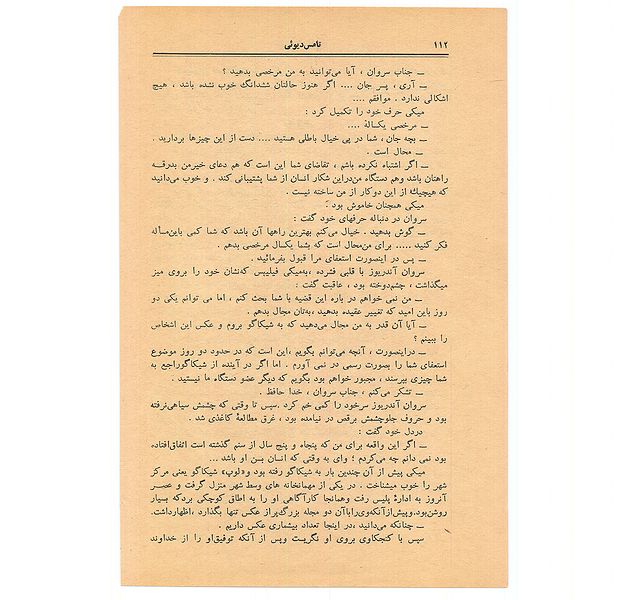 ۱۱۲
تامس دیوئی
ــ جناب سروان ، آیا می‌توانید به من مرخصی بدهید ؟
ــ آری ، پسر جان .... اگر هنوز حالتان ششدانگ خوب نشده باشد ، هیچ
اشکالی ندارد . موافقم ....
میکی حرف خود را تکمیل کرد :
ــ مرخصی یکسالهٔ ....
ــ بچه جان ، شما در پی خیال باطلی هستید .... دست از این چیزها بردارید .
ــ محال است .
ــ اگر اشتباه نکرده باشم ، تقاضای شما این است که هم دعای خیرمن بدرقهٔ
راهتان باشد وهم دستگاه من‌دراین شکار انسان از شما پشتیبانی کند . و خوب می‌دانید
که هیچیك از این دوکار از من ساخته نیست .
میکی همچنان خاموش بود .
سروان در دنباله حرفهای خود گفت :
ــ گوش بدهید . خیال می‌کنم بهترین راهها آن باشد که شما کمی باین‌مسأله
فکر کنید ..... برای من‌محال است که بشما یکسال مرخصی بدهم .
ــ پس در اینصورت استعفای مرا قبول بفرمائید .
سروان آندریوز با قلبی فشرده ، به‌میکی فیلیپس که‌نشان خود را بروی میز
میگذاشت ، چشم‌دوخته بود ، عاقبت گفت :
ــ من نمی خواهم در باره این قضیه با شما بحث کنم ، اما می توانم یکی دو
روز باین امید که تغییر عقیده بدهید ، به‌تان مجال بدهم .
ــ آیا آن قدر به من مجال می‌دهید که به شیکاگو بروم و عکس این اشخاص
را ببینم ؟
ــ دراینصورت ، آنچه می‌توانم بگویم ،این است که در حدود دو روز موضوع
استعفای شما را بصورت رسمی در نمی آورم . اما اگر در آینده از شیکاگوراجع به
شما چیزی بپرسند ، مجبور خواهم بود بگویم که دیگر عضو دستگاه ما نیستید .
ــ تشکر می‌کنم ، جناب سروان ، خدا حافظ .
سروان آندریوز سرخود را کمی خم کرد .سپس تا وقتی که چشمش سیاهی‌نرفته
بود و حروف جلوچشمش برقص در نیامده بود ، غرق مطالعهٔ کاغذی شد .
دردل خود گفت :
ــ اگر این واقعه برای من که پنجاه و پنج سال از سنم گذشته است اتفاق‌افتاده
بود نمی دانم چه می‌کردم ؛ وای به وقتی که انسان بسن او باشد ...
میکی پیش از آن چندین بار به شیکاگو رفته بود و«لوپ» شیکاگو یعنی مرکز
شهر را خوب میشناخت . در یکی از مهمانخانه های وسط شهر منزل گرفت و عصر
آنروز به ادارهٔ پلیس رفت وهمانجا کارآگاهی او را به اطاق کوچکی بردکه بسیار
روشن‌بود.وپیش‌ازآنکه‌وی‌راباآن دو مجله بزرگ‌پراز عکس تنها بگذارد ،اظهارداشت.
ــ چنانکه می‌دانید ،در اینجا تعداد بیشماری عکس داریم .
سپس با کنجکاوی بروی او نگریست وپس از آنکه توفیق‌او را از خداوند